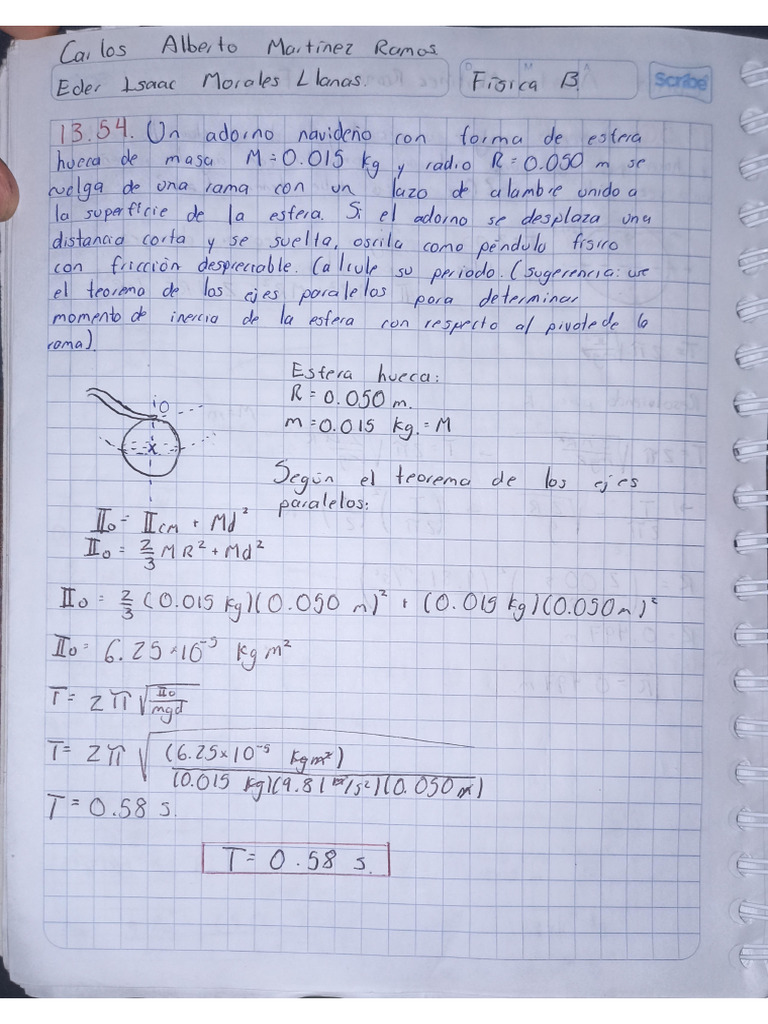 Carlos Alberto Martínez Ramos.
Eder Isaac Morales Llanas.
Física B.
Scribe
13.54. Un adorno navideño con forma de esfera
hueca de masa M = 0.015 kg y radio R = 0.050 m se
cuelga de una rama con un lazo de alambre unido a
la superficie de la esfera. Si el adorno se desplaza una
distancia corta y se suelta, oscila como péndulo físico
con fricción despreciable. Calcule su periodo. (sugerencia: use
el teorema de los ejes paralelos para determinar
momento de inercia de la esfera con respecto al pivote de la
rama).
Esfera hueca:
R = 0.050 m.
m = 0.015 kg. = M
O
x
Según el teorema de los ejes
paralelos:
IIo = IICM + Md²
IIo = 2/3 MR² + Md²
IIo = 2/3 (0.015 kg)(0.050 m)² + (0.015 kg)(0.050 m)²
IIo = 6.25×10⁻⁵ kg m²
T = 2π √(IIo/mgd)
T = 2π √((6.25×10⁻⁵ kgm²)/(0.015 kg)(9.81 m/s²)(0.050 m))
T = 0.58 s.
T = 0.58 s.